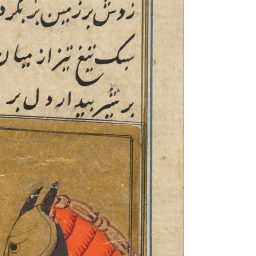 زدش بر زمین بر بکرد
سبک تیغ تیز از میان
بر شیر بیدار دل بر